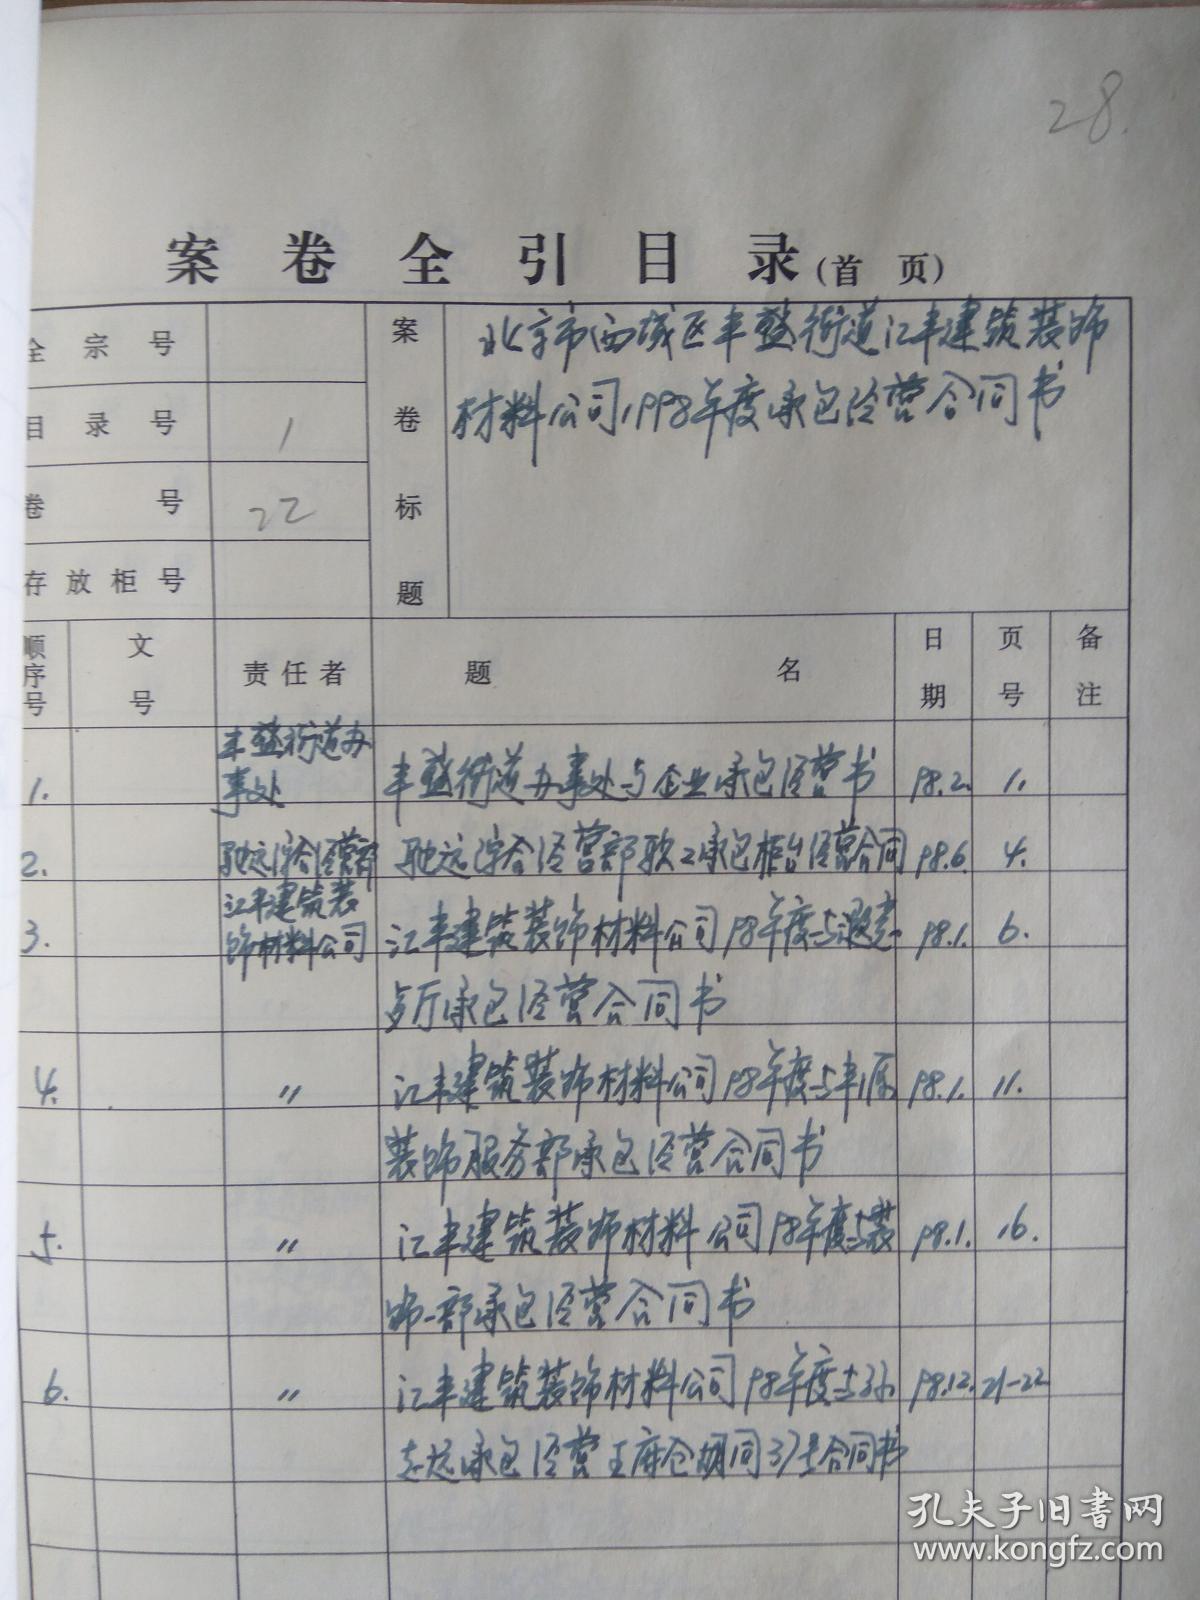 28.
案卷全引目录(首页)
全宗号
目录号 1
卷号 22
存放柜号
案卷标题
北京市西城区丰盛街道江丰建筑装饰
材料公司1998年度承包经营合同书
顺序号 文号 责任者 题名 日期 页号 备注
丰盛街道办
1. 事处 丰盛街道办事处与企业承包经营书 98.2. 1.
2. 驰远综合经营部 驰远综合经营部职工承包柜台经营合同 98.6 4.
江丰建筑装
3. 饰材料公司 江丰建筑装饰材料公司98年度与 98.1. 6.
歺厅承包经营合同书
4. 〃 江丰建筑装饰材料公司98年度与丰源 98.1. 11.
装饰服务部承包经营合同书
5. 〃 江丰建筑装饰材料公司98年度与装 98.1. 16.
饰一部承包经营合同书
6. 〃 江丰建筑装饰材料公司98年度与孙 98.12. 21-22
志远承包经营王府仓胡同37号合同书
孔夫子旧书网
www.kongfz.com